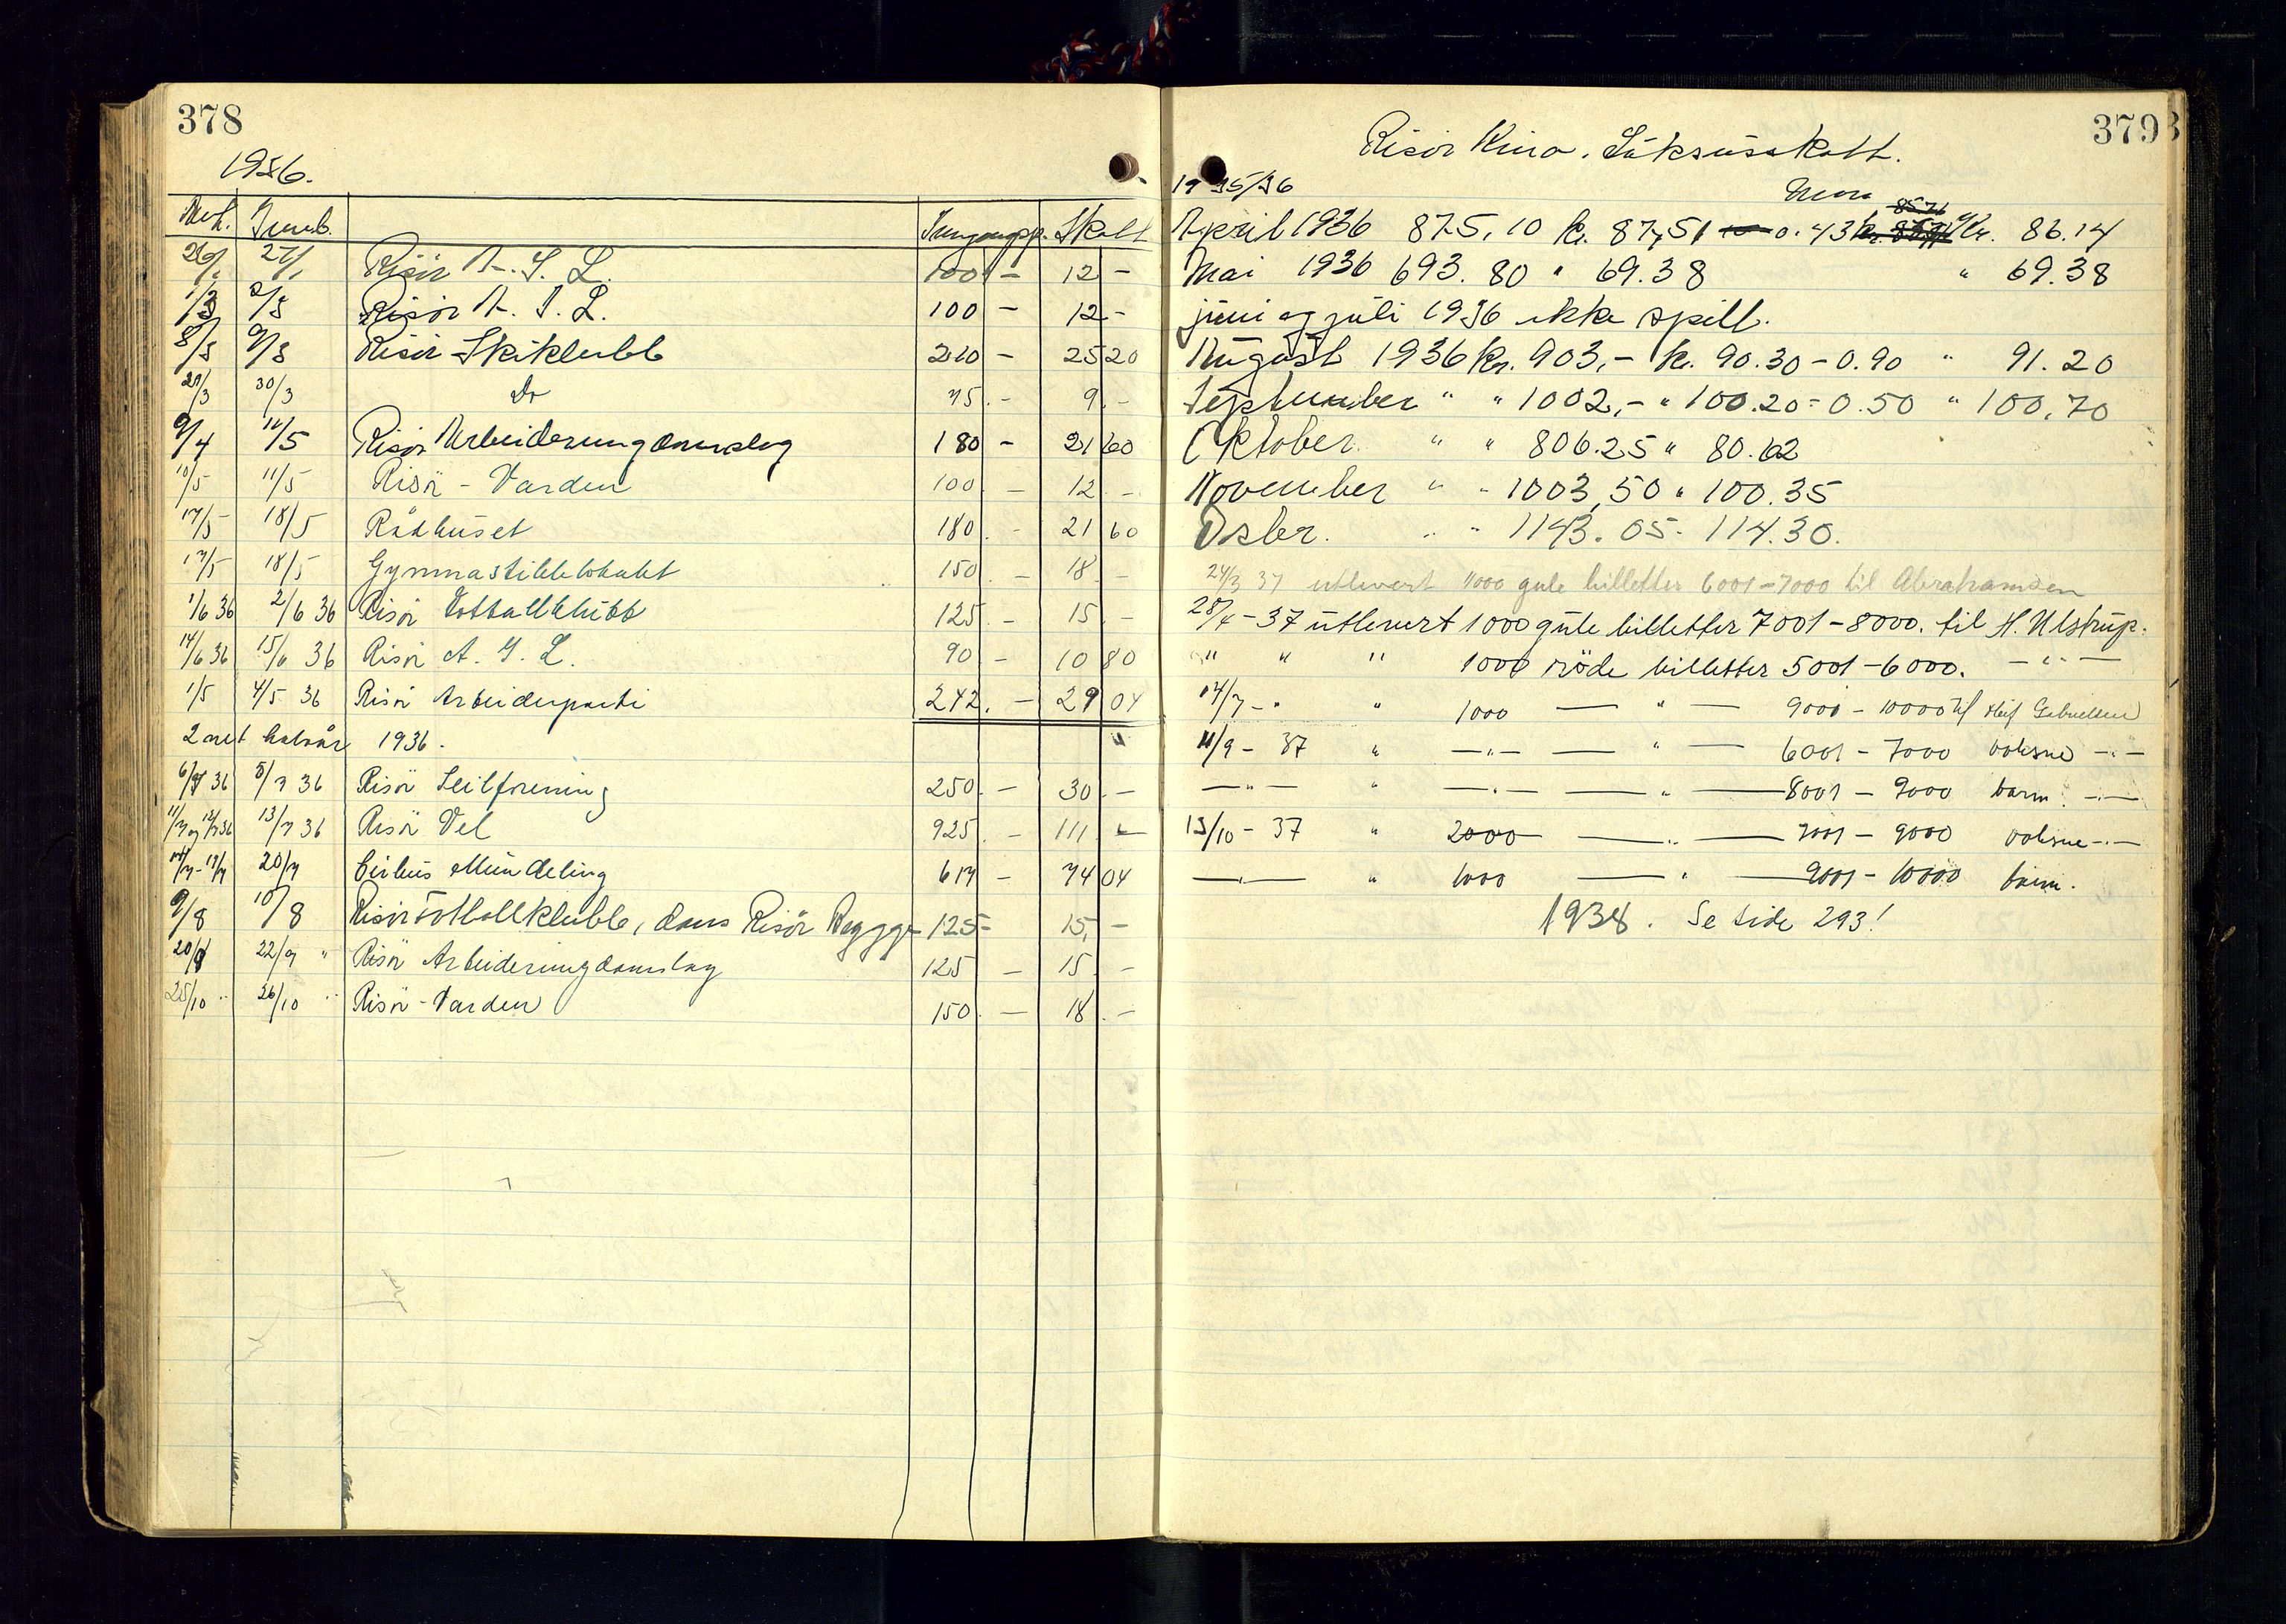 378
1936.
Skatt
26/1 27/1 Risör A. I. L. 100 - 12 -
1/3 2/3 Risör A. I. L. 100 - 12 -
8/3 9/3 Risör Skiklubb 210 - 25 20
29/3 30/3 Do 75 - 9 -
9/4 14/5 Risör Arbeiderungdomslag 180 - 21 60
10/5 11/5 Risör - Varden 100 - 12 -
17/5 18/5 Rådhuset 180 - 21 60
17/5 18/5 Gymnastikklokalet 150 - 18 -
1/6 36 2/6 36 Risör Fotballklubb 125 - 15 -
14/6 36 15/6 36 Risör A. I. L. 90 - 10 80
1/5 4/5 36 Risör Arbeiderparti 242. - 29 04
2net halvår 1936.
6/7 36 8/7 36 Risör Seilforening 250 - 30 -
11/7 og 12/7 36 13/7 36 Risör Vel 925 - 111 -
20/7 Cirkus Mundeling 617 - 74 04
9/8 10/8 Risör Fotballklubb, dans Risör Brygge 125 - 15, -
20/9 22/9 " Risör Arbeiderungdomslag 125 - 15 -
25/10 " 26/10 " Risör - Varden 150 - 18 -
379
Risör Kino. Luksusskatt.
1935/36
April 1936 875,10 kr. 87,51 0.43 kr. 86.14
Mai 1936 693.80 " 69.38 " 69.38
juni og juli 1936 ikke spill.
August 1936 kr. 903,- kr. 90.30 - 0.90 " 91.20
September " " 1002,- " 100.20 - 0.50 " 100,70
Oktober " " 806.25 " 80.62
November " " 1003,50 " 100.35
Dsbr. " " 1143.05 - 114.30.
24/3 37 utlevert 1000 gule billetter 6001-7000 til Abrahamsen
28/4 - 37 utlevert 1000 gule billetter 7001-8000. til H. Ulstrup.
" " " 1000 röde billetter 5001-6000. - " -
14/7 - " " 1000 — " — 9001 - 10000 til Leif Gabrielsen
11/9 - 37 " — " — — " — 6001 - 7000 voksne - " -
— " — " — " — — " — 8001 - 9000 barn. - " -
15/10 - 37 " 2000 — " — 7001 - 9000 voksne - " -
— " — " 1000 — " — 9001 - 10000 barn.
1938. Se side 293!